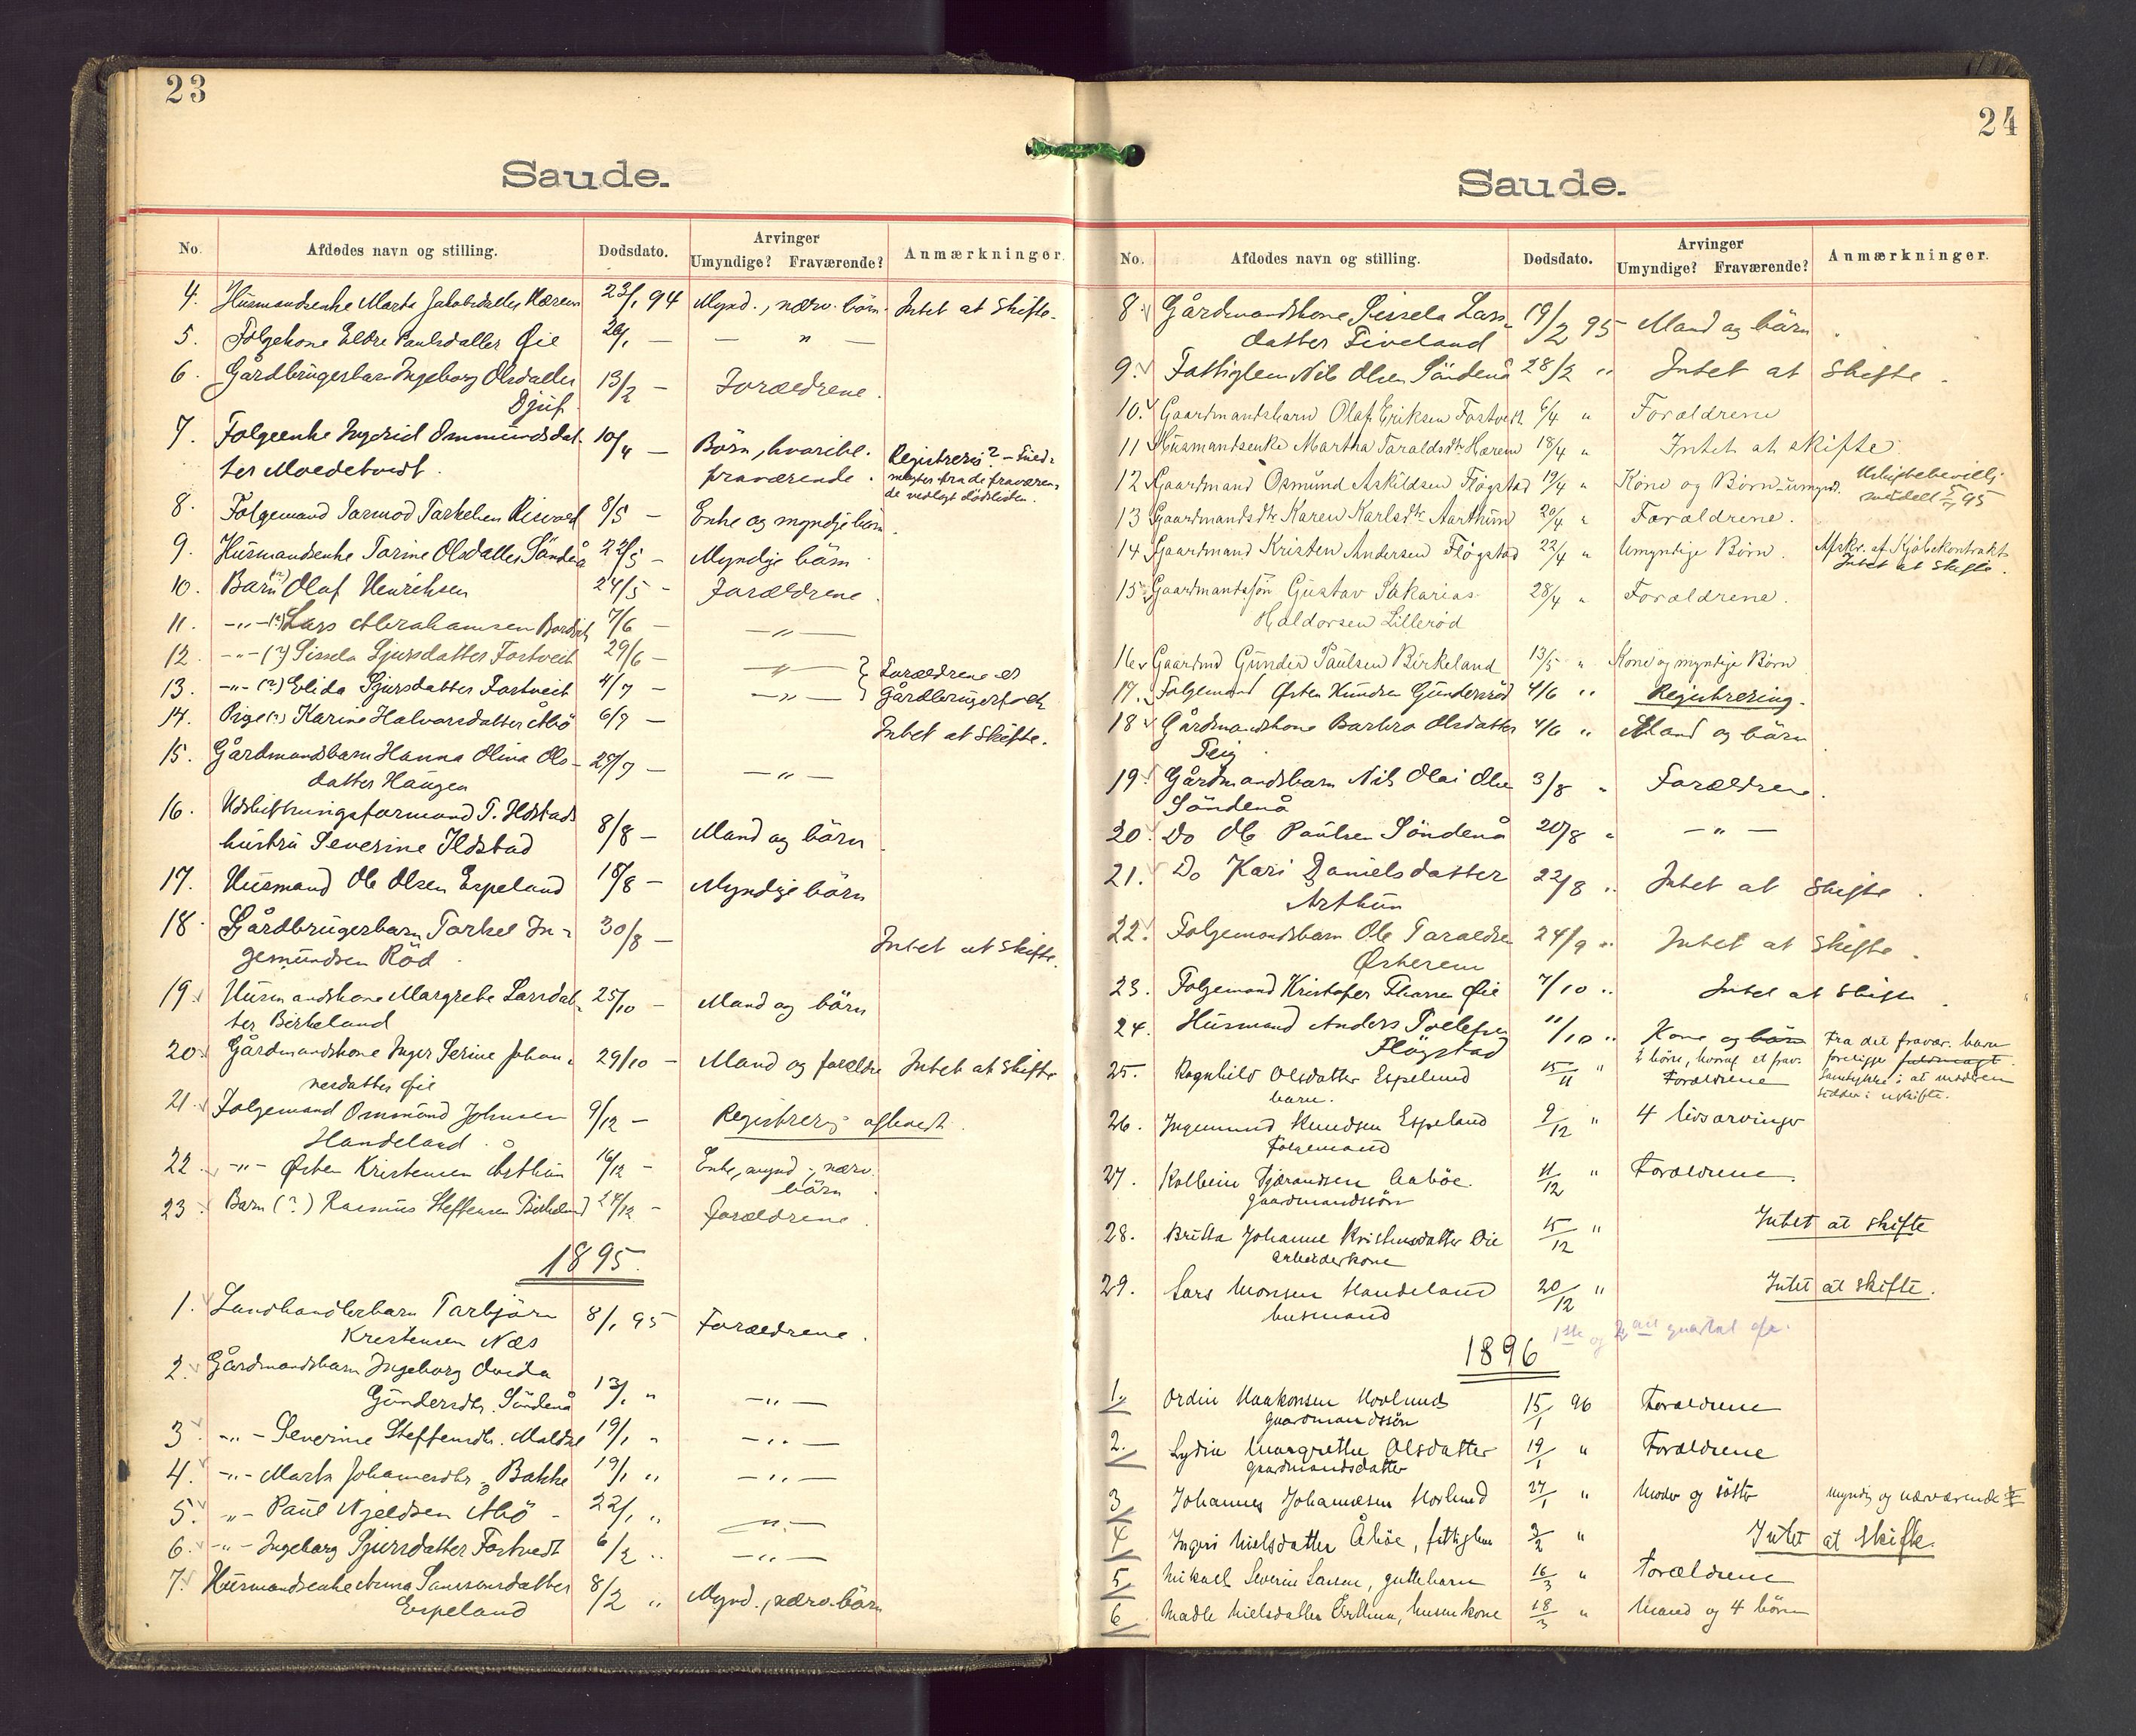 23
Saude.
No. Afdødes navn og stilling. Dødsdato. Arvinger Umyndige? Fraværende? Anmærkninger.
4. Husmandsenke Marta Jakobsdatter Hærem 23/1 94 Mynd., nærv. börn. Intet at skifte.
5. Folgekone Eldre Paulsdatter Øie 26/1 — — " —
6. Gårdbrugerbarn Ingeborg Olsdatter
Djuf. 13/2 — Forældrene.
7. Folgeenke Ingerid Ommundsdat-
ter Moedetvedt. 10/4 — Börn, hvoribl.
fraværende. Registreres? – Fuld-
magter fra de fraværen-
de vedlagt dödslisten.
8. Folgemand Tarmod Tarkelsen Risvold 8/5 — Enke og myndige börn.
9. Husmandsenke Tarine Olsdatter Söndenå 22/5 — Myndige börn.
10. Barn (?) Olaf Henriksen 24/5 — Forældrene.
11. -"- (?) Lars Abrahamsen 7/6 — — " —
12. -"- (?) Sissela Sjursdatter Fostveit 29/6 — — " — Forældrene er
13. -"- (?) Elida Sjursdatter Fostveit 4/7 — — " — gårdbrugerfolk
14. Pige (?) Karine Halvorsdatter Åbö 6/7 — Intet at skifte.
15. Gårdmandsbarn Hanna Olina Ols-
datter Haugen 25/7 — — " —
16. Udskiftningsformand T. Ildstads
hustru Severine Ildstad 8/8 — Mand og börn.
17. Husmand Ole Olsen Espeland 18/8 — Myndige börn
18. Gårdbrugerbarn Torkel In-
gemundsen Röd. 30/8 — Intet at skifte.
19. Husmandskone Margrete Larsdat-
ter Birkeland 25/10 — Mand og börn
20. Gårdmandskone Inger Serine Johan-
nesdatter Øie 29/10 — Mand og forældre Intet at skifte
21. Folgemand Ommund Johnsen
Handeland. 9/12 — Registrering afholdt.
22. -"- Østen Kristensen Årthun 16/12 — Enke, mynd., nærv.
börn.
23. Barn (?) Rasmus Steffensen Birkeland 27/12 — Forældrene.
1895.
1. Landhandlerbarn Tarbjörn
Kristensen Næs 8/1 95 Forældrene.
2. Gårdmandsbarn Ingeborg Ovida
Gundersdtr. Söndenå 13/1 " — " —
3. -"- Severine Steffensdtr. Maldal 19/1 " — " —
4. -"- Marta Johannesdtr. Bakke 19/1 " — " —
5. -"- Paul Njeldsen Åbö 22/1 " — " —
6. -"- Ingeborg Sjursdatter Fostvedt 6/2 " — " —
7. Husmandsenke Anna Samsonsdatter
Espeland 8/2 " Mynd., nærv. börn
24
Saude.
No. Afdødes navn og stilling. Dødsdato. Arvinger Umyndige? Fraværende? Anmærkninger.
8. Gårdmandskone Sissela Lars-
datter Fiveland 19/2 95 Mand og börn.
9. Fattiglem Nils Olsen Söndenå 28/2 " Intet at skifte.
10. Gaardmandsbarn Olaf Eriksen Fostveit 6/4 " Forældrene
11 Husmandsenke Martha Taraldsdtr Hærem 18/4 " Intet at skifte.
12 Gaardmand Osmund Askildsen Fløgstad 19/4 " Kone og Börn umynd. Uskiftebevilling
meddelt 95
13 Gaardmandsdtr Karen Karlsdtr Aarthun 20/4 " Forældrene.
14 Gaardmand Kristen Andersen Fløgstad 22/4 " Umyndige Børn. Afskr. af Kjøbekontrakt
Intet at skifte.
15 Gaardmandssøn Gustav Sakarias
Haldorsen Lillerød 28/4 " Forældrene.
16 Gaardmd Gunder Paulsen Birkeland 13/5 " Kone og myndige Børn
17. Folgemand Østen Knudsen Gundersröd 4/6 " Registrering.
18 Gårdmandskone Barbra Olsdatter
Teig. 4/6 " Mand og börn.
19. Gårdmandsbarn Nils Olai Olsen
Söndenå 3/8 " Forældrene.
20. Do Ole Paulsen Söndenå 20/8 " — " —
21. Do Kari Danielsdatter
Arthun 22/8 " Intet at skifte.
22. Folgemandsbarn Ole Taraldsen
Østerem 24/9 " Intet at skifte.
23. Folgemand Kristofer Øie 7/10 " Intet at skifte.
24. Husmand Anders Tollefsen
Fløgstad 11/10 " Kone og börn
2 börn, hvoraf et frav. Fra det fravær. barn
foreligger fuldmagt
samtykke i at moderen
sidder i uskifte.
25. Ragnhild Olsdatter Espeland
barn. 15/11 " Forældrene
26. Ingemund Knudsen Espeland
Folgemand 9/12 " 4 livsarvinger
27. Kolbein Bjørandsen Aaböe.
gaardmandssön 11/12 " Forældrene.
28. Britta Johanne Kristensdatter Øie
Arbeiderkone 15/12 " Intet at skifte
29. Lars Monsen Handeland
husmand 20/12 " Intet at skifte.
1ste og 2det quartal
1896
1. Ordin Haakonsen Hovland
gaardmandssön 15/1 96 Forældrene
2. Lydia Margrethe Olsdatter
gaardmandsdatter 19/1 " Forældrene
3 Johannes Johannesen Hovland 27/1 " Moder og söster myndig og nærværende
4 Ingeri Nielsdatter Åböe, fattiglem 3/2 " Intet at skifte.
5 Mikael Severin Larsen, guttebarn 16/3 " Forældrene
6 Madle Nielsdatter Årthun, husmkone 18/3 " Mand og 4 börn